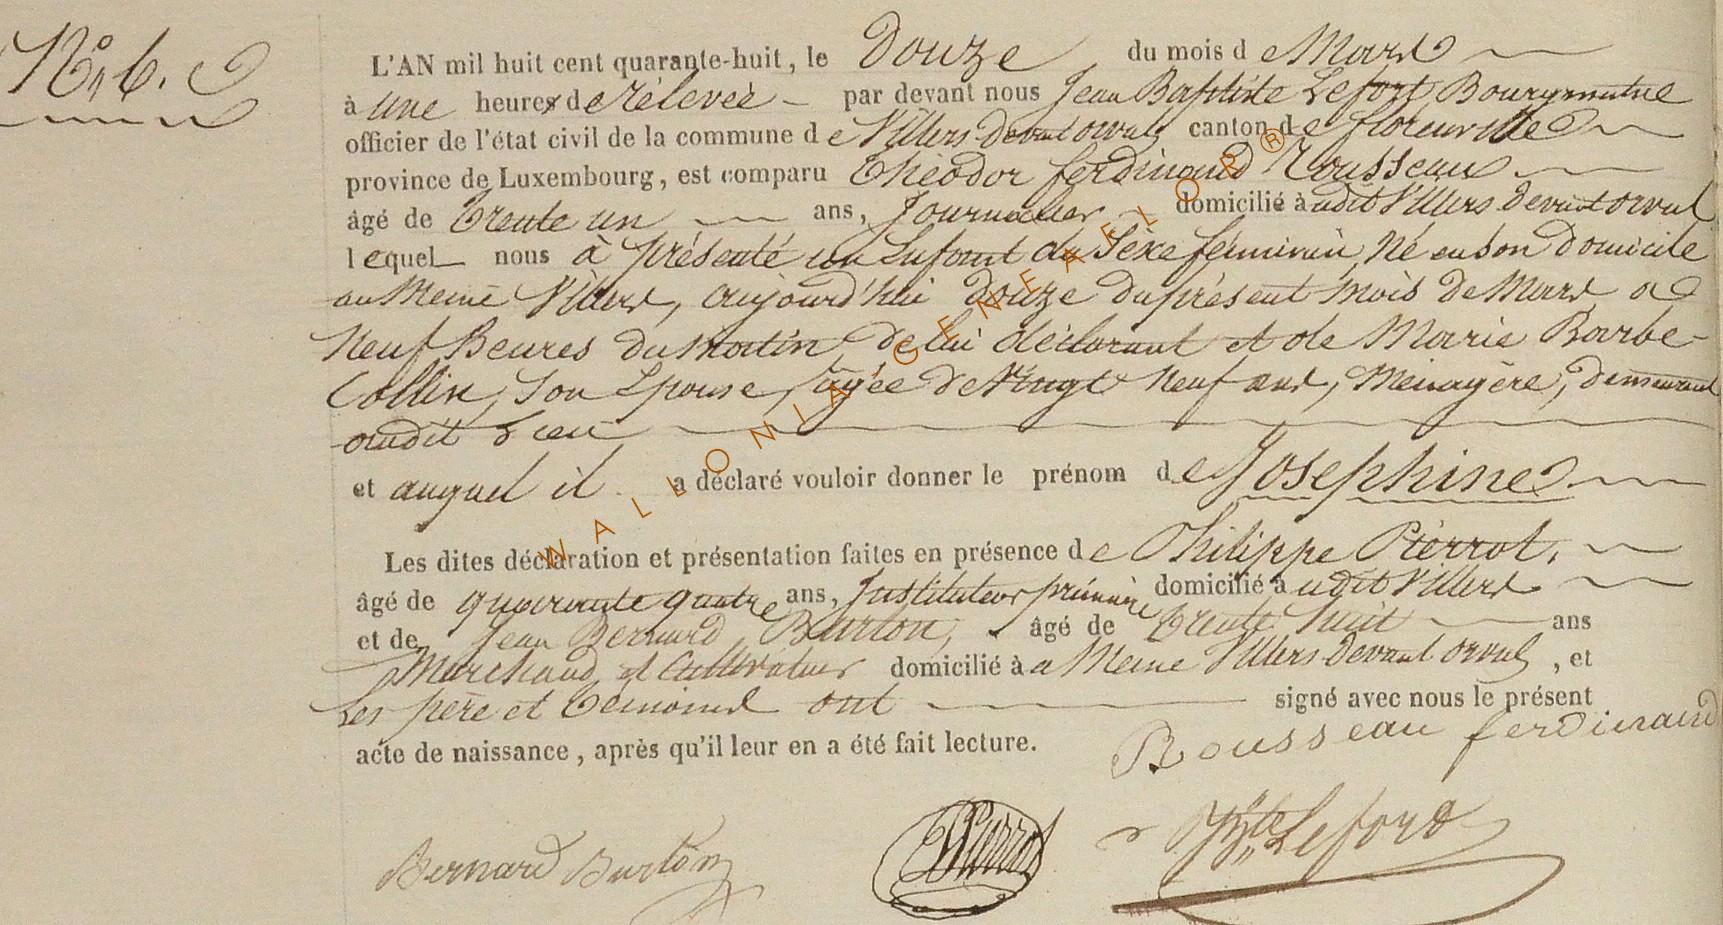 N° 6.
L'AN mil huit cent quarante-huit, le Douze du mois de Mars
à une heure de rélevée par devant nous Jean Baptiste Lefort, Bourgmestre
officier de l'état civil de la commune de Villers devant orval canton de florenville
province de Luxembourg, est comparu Théodor ferdinand Rousseau
âgé de trente un ans, Journalier domicilié audit Villers devant orval
lequel nous à présenté un Enfant du Sexe féminin, Né en son domicile
au Meme Villers, aujourd'hui douze du présent mois de Mars a
Neuf heures du Matin, de lui déclarant et de Marie Barbe
Collin, son Epouse, âgée de Vingt Neuf ans, Menagère, demeurant
audit Lieu
et auquel il a déclaré vouloir donner le prénom de Josephine
Les dites déclaration et présentation faites en présence de Philippe Pierrot,
âgé de quarante quatre ans, Instituteur primaire domicilié audit Villers
et de Jean Bernard Burton, âgé de trente huit ans
Marchand et Cultivateur domicilié à a Meme Villers devant orval, et
Les père et temoins ont signé avec nous le présent
acte de naissance, après qu'il leur en a été fait lecture.
Rousseau ferdinand
Bernard Burton
Pierrot
JBte Lefort
WALLONIA GENEAFLOR ®